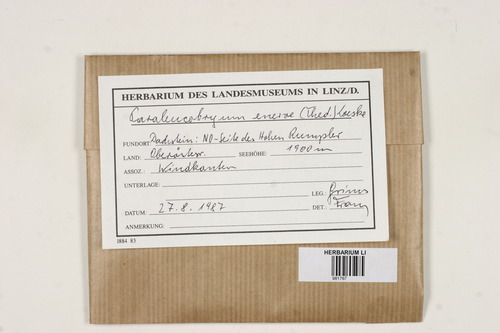 HERBARIUM DES LANDESMUSEUMS IN LINZ/D.
Paraleucobryum enerve (Thed.) Loeske
FUNDORT: Dachstein: NO-Seite des Hohen Rumpler
LAND: Oberösterr. SEEHÖHE: 1900 m
ASSOZ.: Windkanten
UNTERLAGE:
LEG.: Grims
DATUM: 27.8.1987 DET.: Franz
ANMERKUNG:
I884 83
HERBARIUM LI